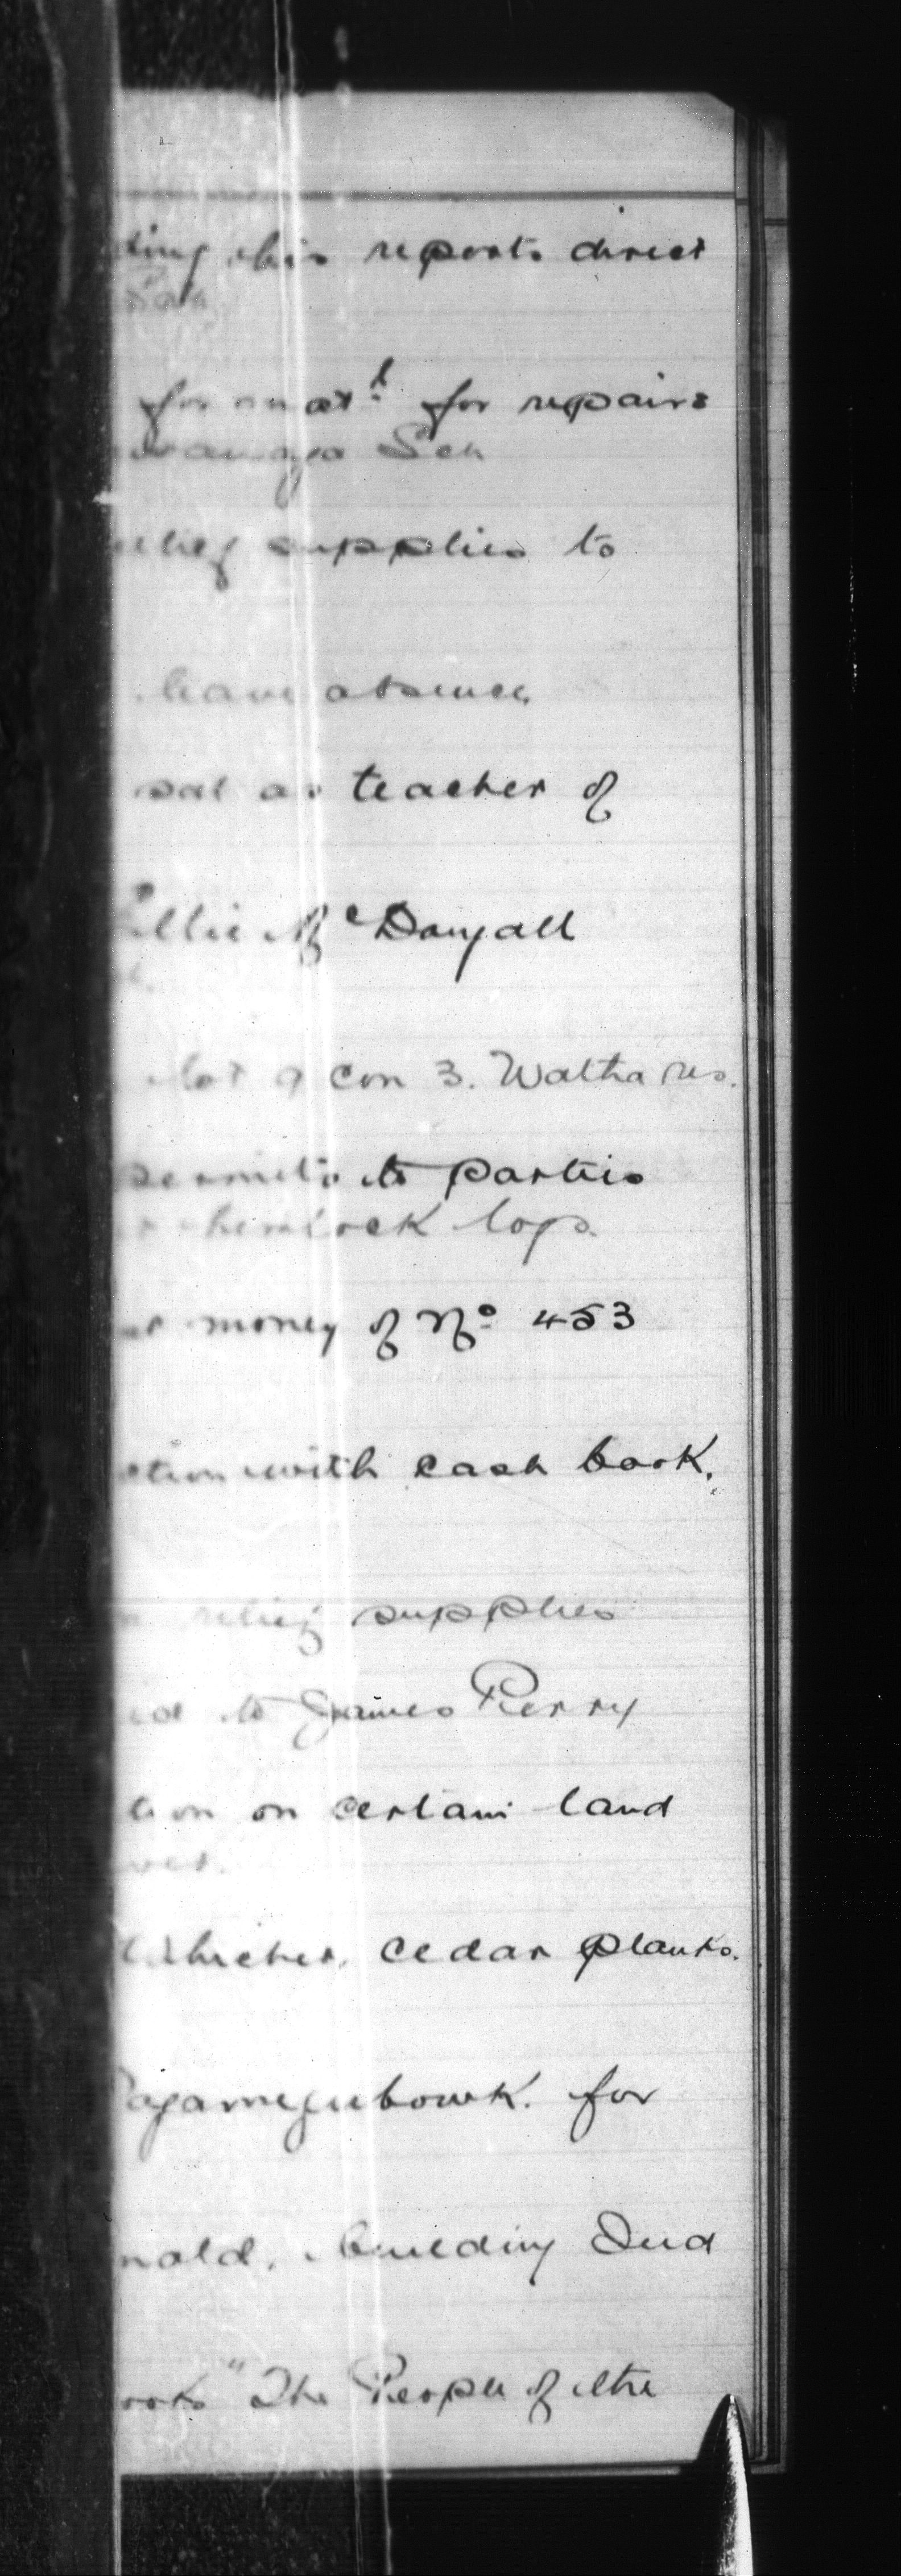 ding his reports direct
for amt for repairs
Sch
relief supplies to
leave absence
sal as teacher of
illie McDougall
lot 9 con 3. Waltha res.
permits to parties
hemlock logs.
money of No 453
ction with cash book.
relief supplies
id to James Perry
tion on certain land
ver.
thicker, cedar planks.
agamegubowk. for
nald, building Ind
ooks "The People of the